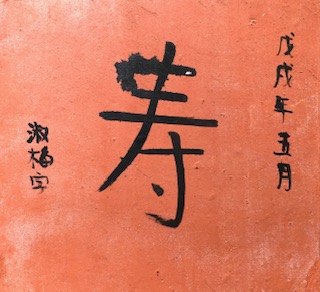 戊戌年五月
寿
淑梅字